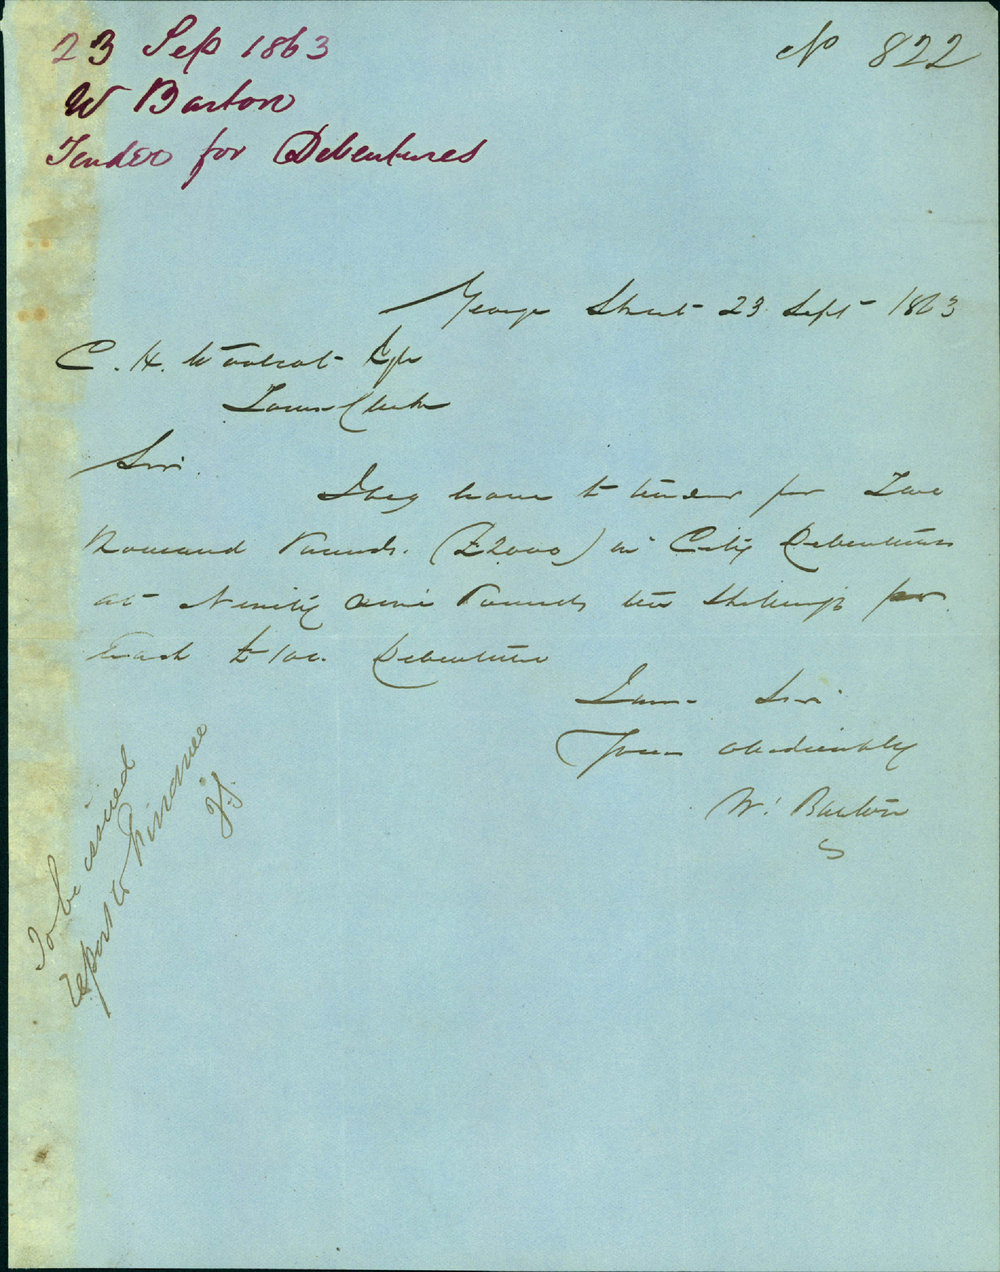 23 Sep 1863
W Barton
Tender for Debentures
No 822
George Street 23 Sept 1863
C. H. Woolcott Esqr
Town Clerk
Sir
I beg leave to tender for Two
Thousand Pounds. (£2000) in City Debentures
at Ninety nine Pounds ten Shillings for
Each £100. Debenture
I am Sir
Yours obediently
W. Barton
To be issued
report to Finance